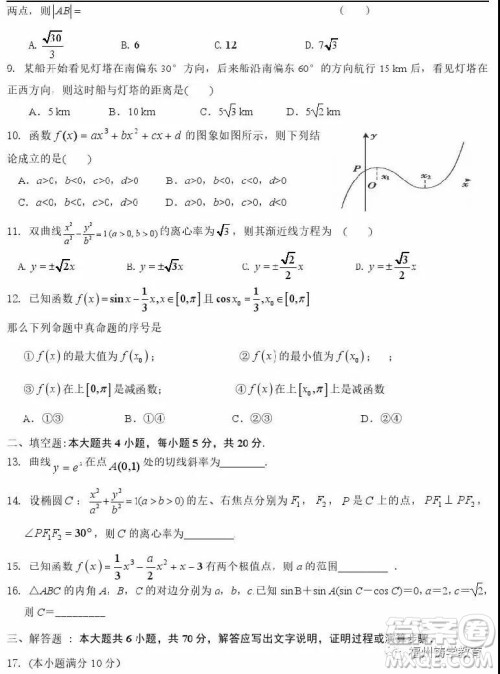 两点，则|AB|= （ ）
A. √30/3 B. 6 C. 12 D. 7√3
9. 某船开始看见灯塔在南偏东30°方向，后来船沿南偏东60°的方向航行15 km后，看见灯塔在
正西方向，则这时船与灯塔的距离是( )
A．5 km B．10 km C．5√3 km D．5√2 km
10. 函数f(x)=ax³+bx²+cx+d的图象如图所示，则下列结
论成立的是( )
A．a>0，b<0，c>0，d>0 B．a>0，b<0，c<0，d>0
C．a<0，b<0，c>0，d>0 D．a>0，b>0，c>0，d<0
y
P
O x₁ x₂ x
11. 双曲线x²/a²−y²/b²=1(a>0,b>0)的离心率为√3，则其渐近线方程为 （ ）
A. y=±√2x B. y=±√3x C. y=±√2/2 x D. y=±√3/2 x
12. 已知函数f(x)=sinx−1/3x,x∈[0,π]且cosx₀=1/3,x₀∈[0,π]
那么下列命题中真命题的序号是
①f(x)的最大值为f(x₀)； ②f(x)的最小值为f(x₀)． ；
③f(x)在上[0,π]是减函数； ④f(x)在上[x₀,π]是减函数
A．①③ B．①④ C．②③ D．②④
二、填空题:本大题共4小题，每小题5分，共20分.
13. 曲线y=eˣ在点A(0,1)处的切线斜率为________.
14. 设椭圆C：x²/a²+y²/b²=1(a>b>0)的左、右焦点分别为F₁，F₂，P是C上的点，PF₁⊥PF₂，
∠PF₁F₂=30°，则C的离心率为________.
15. 已知函数f(x)=1/3x³−a/2x²+x−3有两个极值点，则a的范围________ .
16. △ABC的内角A，B，C的对边分别为a，b，c.已知sinB+sinA(sinC−cosC)=0，a=2，c=√2，
则C=________
三、解答题 ：本大题共6小题，共70分，解答应写出文字说明，证明过程或演算步骤.
17. (本小题满分10分)